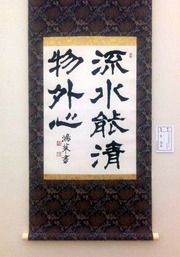 流水能清
物外心
鴻峯書